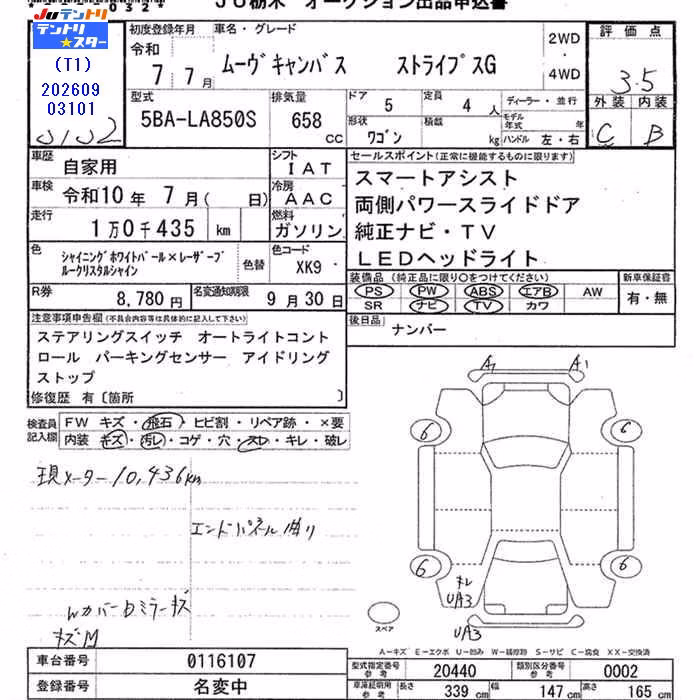 JU栃木 オークション出品申込書
JUテントリ
テントリ
★スター
(T1)
202609
03101
初度登録年月
令和
7 7月
車名・グレード
ムーヴキャンバス ストライプスG
2WD
・
4WD
評価点
3.5
外装 内装
C B
型式
5BA-LA850S
排気量
658 cc
ドア 5
定員 4 人
形状 ワゴン
積載 kg
ディーラー・並行
モデル年式 年
ハンドル 左・右
車歴 自家用
シフト IAT
車検 令和10年 7月( 日)
冷房 AAC
走行 1万0千435 km
燃料 ガソリン
色 シャイニングホワイトパール×レーザーブルークリスタルシャイン
色替
色コード XK9
R券 8,780円
名変通知期限 9月30日
セールスポイント(正常に機能するものに限ります)
スマートアシスト
両側パワースライドドア
純正ナビ・TV
LEDヘッドライト
装備品 (純正品に限り○をつけてください)
PS PW ABS エアB AW
SR ナビ TV カワ
新車保証書
有・無
後日品 ナンバー
注意事項申告欄(不具合内容等は具体的に記入して下さい)
ステアリングスイッチ オートライトコント
ロール パーキングセンサー アイドリング
ストップ
修復歴 有〔箇所 〕
検査員記入欄
FW キズ・飛石・ヒビ割・リペア跡・×要
内装 キズ・汚レ・コゲ・穴・スレ・キレ・破レ
現メーター10,436km
エンドパネル曲り
Wカバー Dミラーキズ
キズM
A1 A1
6 6
6 6
UA3
UA3
スペア
A-キズ E-エクボ U-凹み W-補修跡 S-サビ C-腐食 XX-交換済
車台番号 0116107
登録番号 名変中
型式指定番号参考 20440
類別区分番号参考 0002
車庫証明用参考 長さ 339 cm 幅 147 cm 高さ 165 cm